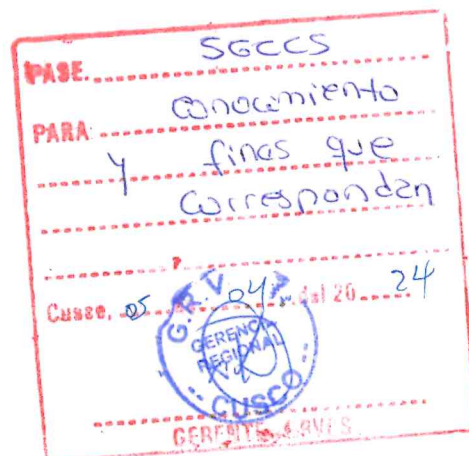 PASE. SGCCS
PARA conocimiento
y fines que
correspondan
Cusco, 05 04 del 20 24
GERENCIA
REGIONAL
CUSCO
GERENTE